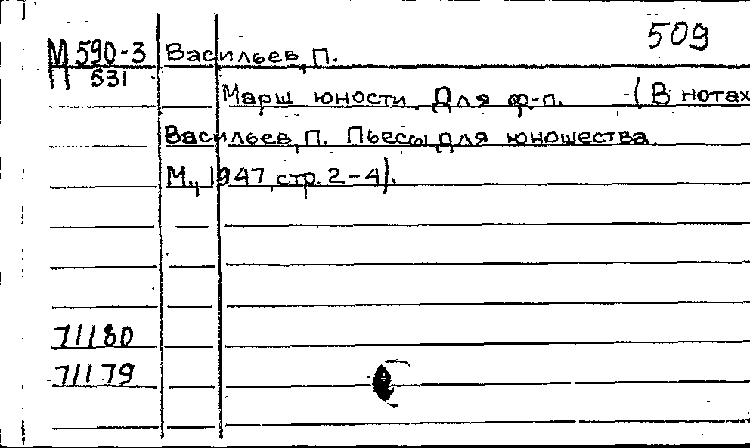 509
М 590-3 Васильев, П.
531
Марш юности. Для ф-п. (В нотах
Васильев, П. Пьесы для юношества.
М., 1947, стр. 2-4).
71180
71179